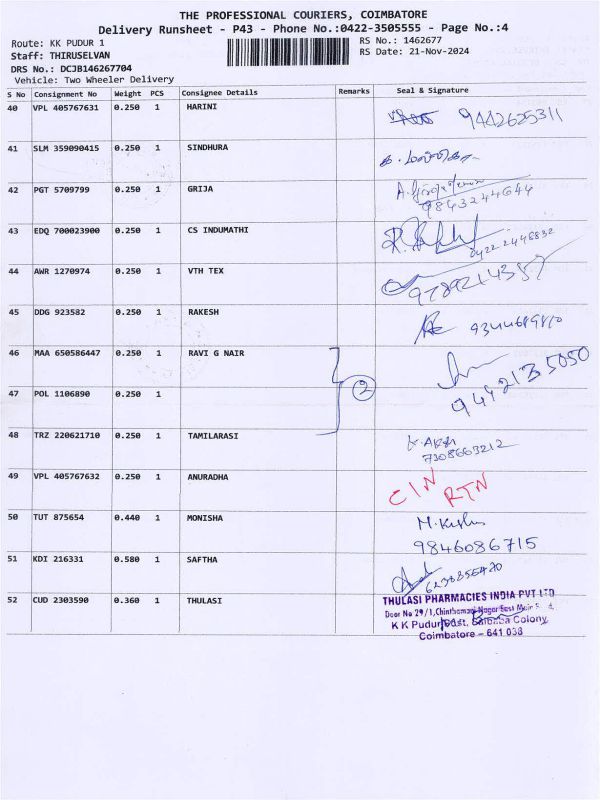 THE PROFESSIONAL COURIERS, COIMBATORE
Delivery Runsheet - P43 - Phone No.:0422-3505555 - Page No.:4
Route: KK PUDUR 1 RS No.: 1462677
Staff: THIRUSELVAN RS Date: 21-Nov-2024
DRS No.: DCJB146267704
Vehicle: Two Wheeler Delivery
S No Consignment No Weight PCS Consignee Details Remarks Seal & Signature
40 VPL 405767631 0.250 1 HARINI 9442625311
41 SLM 359090415 0.250 1 SINDHURA
42 PGT 5709799 0.250 1 GRIJA
9843244644
43 EDQ 700023900 0.250 1 CS INDUMATHI
0422 2446832
44 AWR 1270974 0.250 1 VTH TEX
9789214357
45 DDG 923582 0.250 1 RAKESH
46 MAA 650586447 0.250 1 RAVI G NAIR
2
9442135050
47 POL 1106890 0.250 1
48 TRZ 220621710 0.250 1 TAMILARASI
7308663212
49 VPL 405767632 0.250 1 ANURADHA
CIN RTN
50 TUT 875654 0.440 1 MONISHA
9846086715
51 KDI 216331 0.580 1 SAFTHA
52 CUD 2303590 0.360 1 THULASI THULASI PHARMACIES INDIA PVT LTD
Door No 29/1, Chinthamani Nagar East Main
K K Pudur Post, Saibaba Colony,
Coimbatore - 641 038